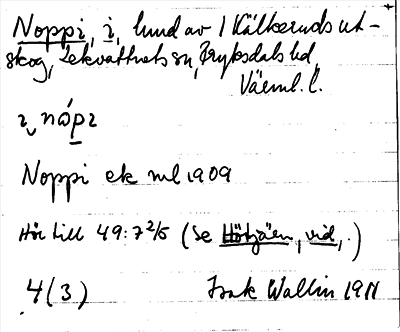 Noppi, i, lund av 1 Kälkeruds ut-
skog, Lekvattnets sn, Fryksdals hd,
Värml. l.
ı nǻpı
Noppi ek ml 1909
Hör till 49:7 2/5 (se Höljåen, vid, .)
4(3) Isak Wallin 1911